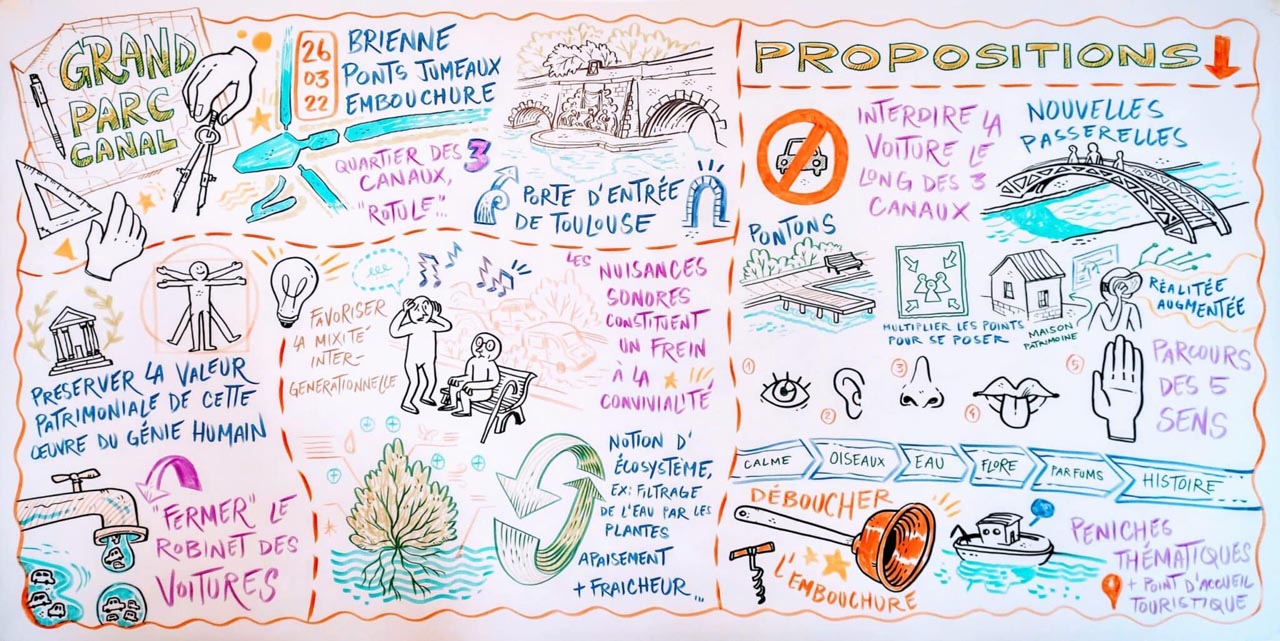 GRAND
PARC
CANAL
26
03
22
BRIENNE
PONTS JUMEAUX
EMBOUCHURE
QUARTIER DES 3
CANAUX,
"ROTULE"...
PORTE D'ENTRÉE
DE TOULOUSE
PRÉSERVER LA VALEUR
PATRIMONIALE DE CETTE
ŒUVRE DU GÉNIE HUMAIN
"FERMER" LE
ROBINET DES
VOITURES
FAVORISER
LA MIXITÉ
INTER-
GENERATIONNELLE
LES NUISANCES
SONORES
CONSTITUENT
UN FREIN
À LA
CONVIVIALITÉ
NOTION D'
ÉCOSYSTÈME,
EX: FILTRAGE
DE L'EAU PAR LES
PLANTES
APAISEMENT
+ FRAICHEUR...
PROPOSITIONS
INTERDIRE LA
VOITURE LE
LONG DES 3
CANAUX
NOUVELLES
PASSERELLES
PONTONS
MULTIPLIER LES POINTS
POUR SE POSER
MAISON
PATRIMOINE
RÉALITÉE
AUGMENTÉE
1
2
3
4
5
PARCOURS
DES 5
SENS
CALME
OISEAUX
EAU
FLORE
PARFUMS
HISTOIRE
DÉBOUCHER
L'EMBOUCHURE
PENICHES
THÉMATIQUES
+ POINT D'ACCUEIL
TOURISTIQUE